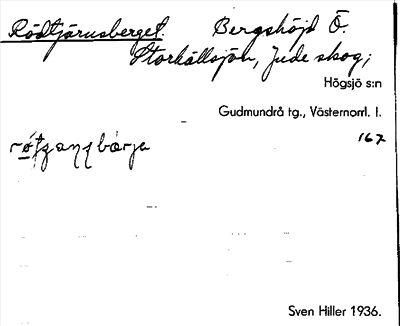 Rödtjärusberget. Bergshöjd Ö.
Storkällsjön, Jude skog;
Högsjö s:n
Gudmundrå tg., Västernorrl. l.
167
Sven Hiller 1936.